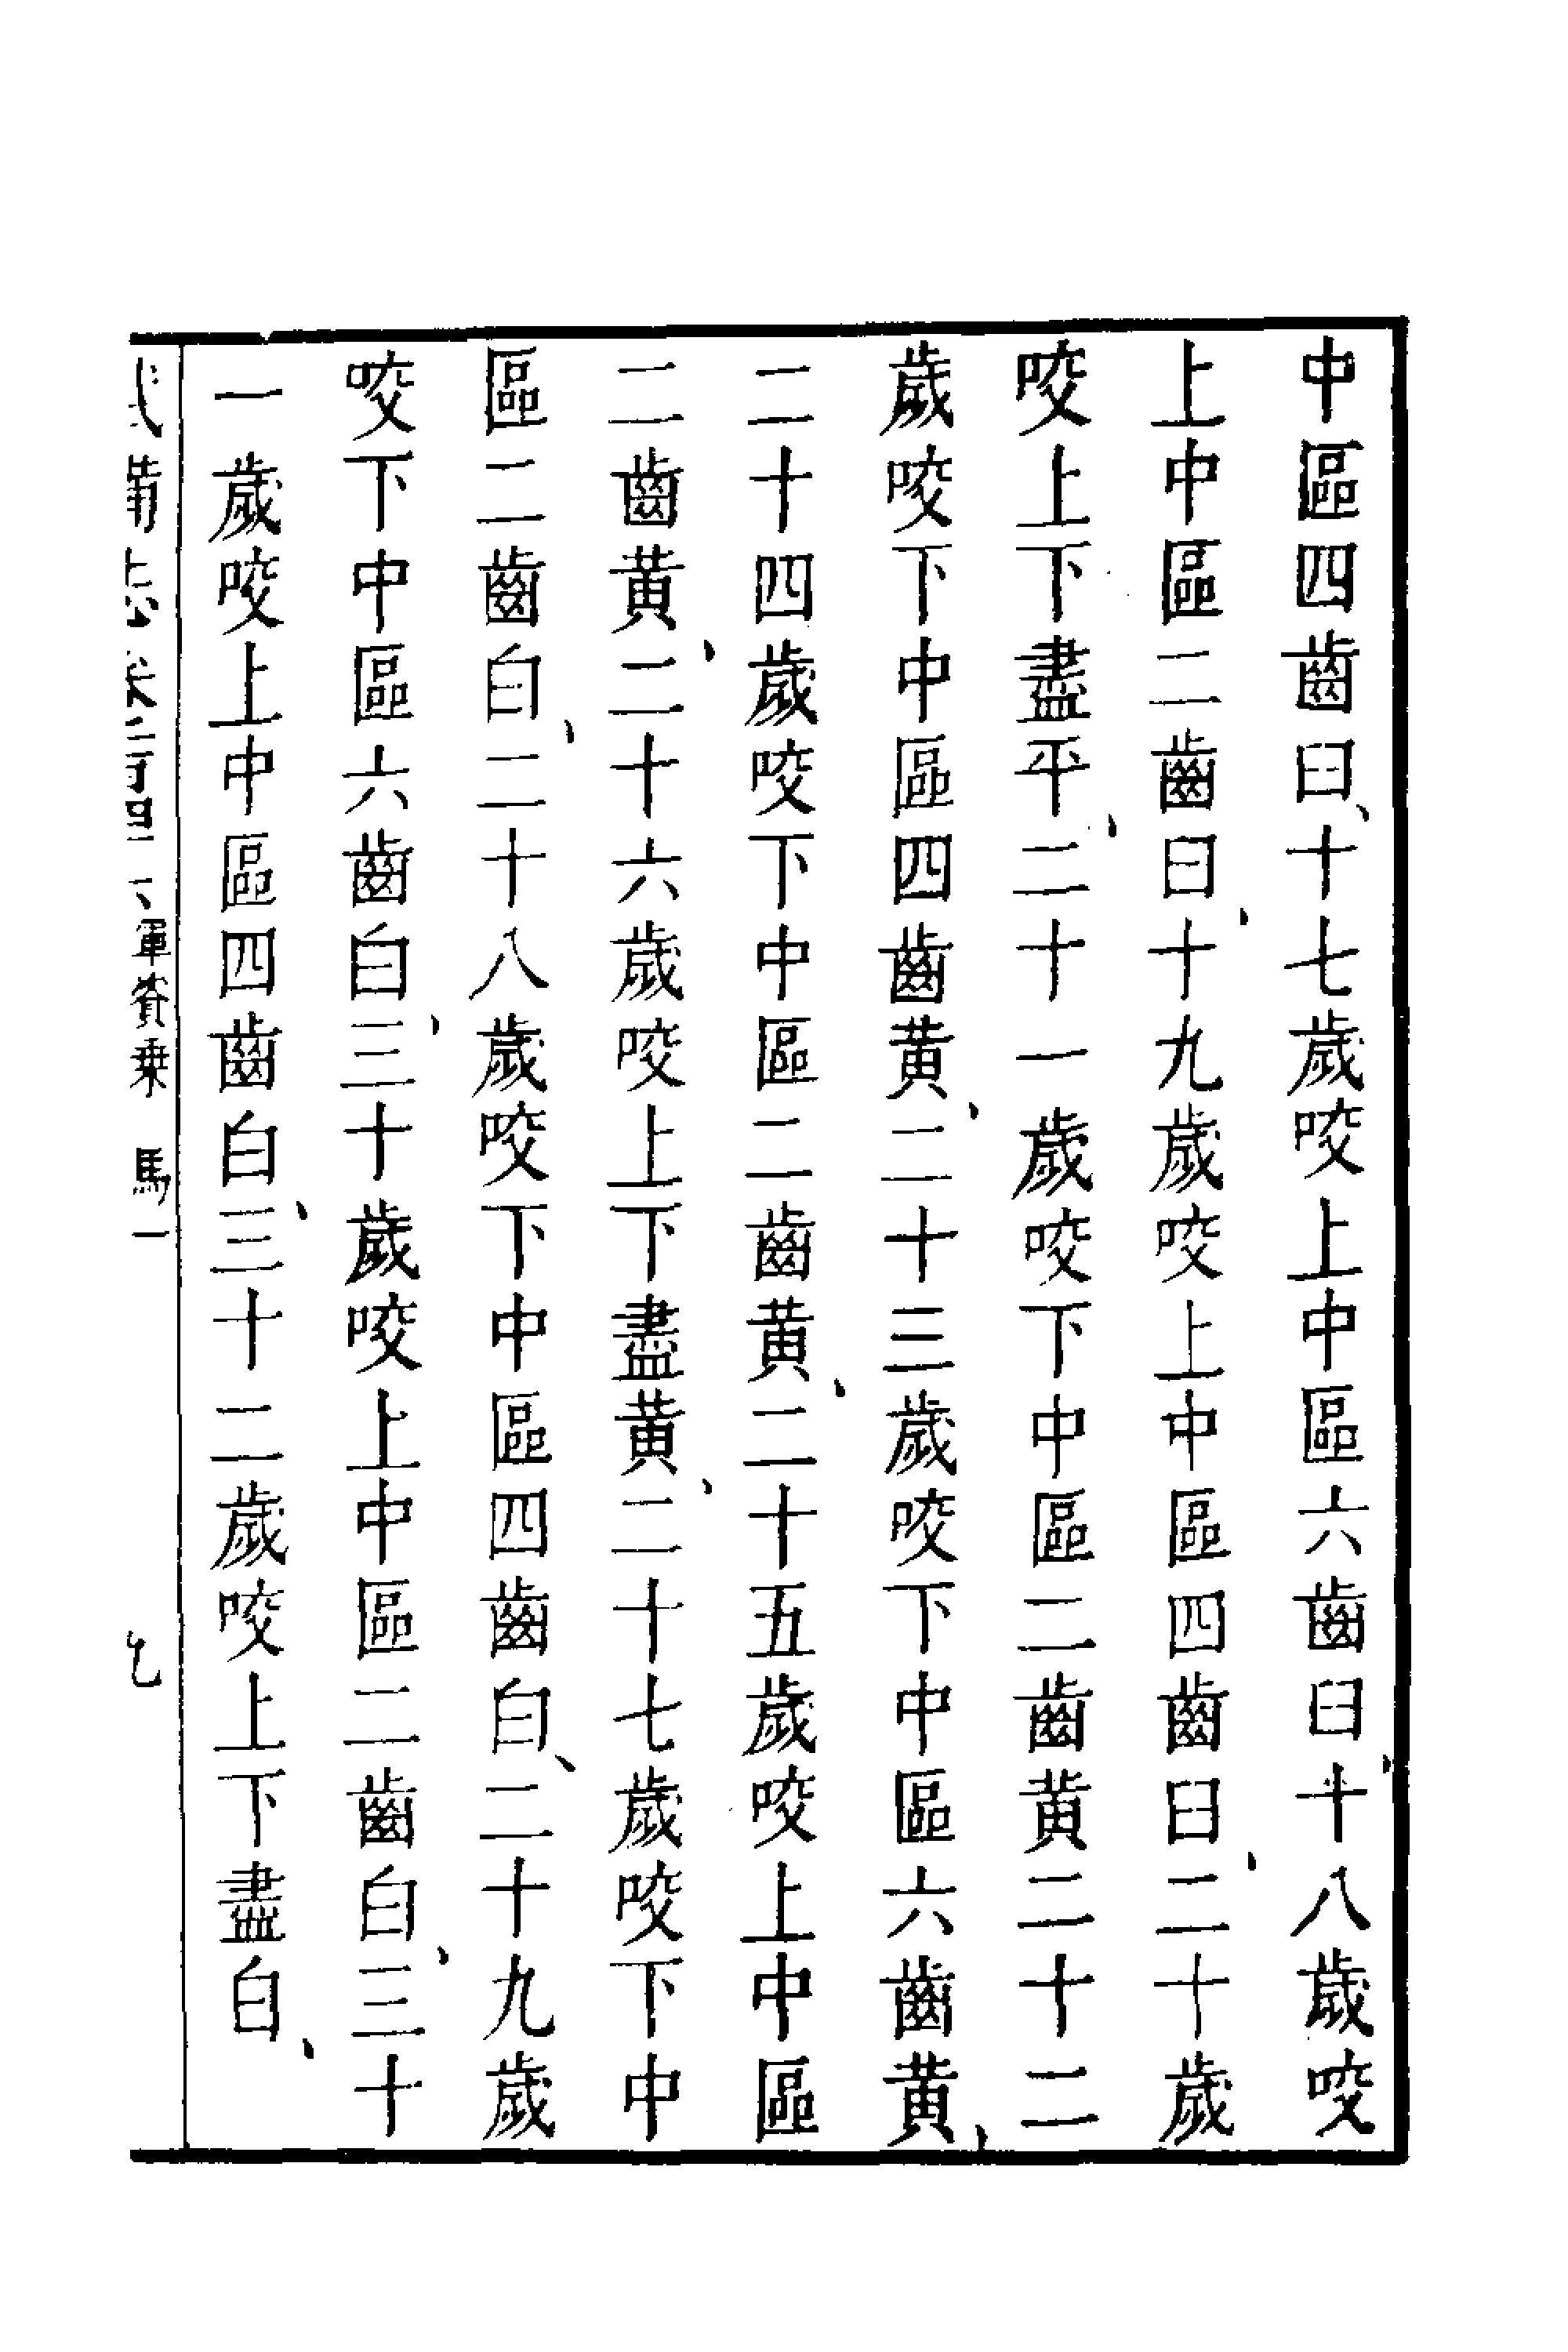 中區四齒臼、十七歲咬上中區六齒臼、十八歲咬
上中區二齒曰、十九歲咬上中區四齒曰、二十歲
咬上下盡平、二十一歲咬下中區二齒黃二十二
歲咬下中區四齒黃、二十三歲咬下中區六齒黃、
二十四歲咬下中區二齒黃、二十五歲咬上中區
二齒黃、二十六歲咬上下盡黃、二十七歲咬下中
區二齒白、二十八歲咬下中區四齒白、二十九歲
咬下中區六齒白、三十歲咬上中區二齒白、三十
一歲咬上中區四齒白、三十二歲咬上下盡白、
武備志卷二百四 軍資乘 馬一 九